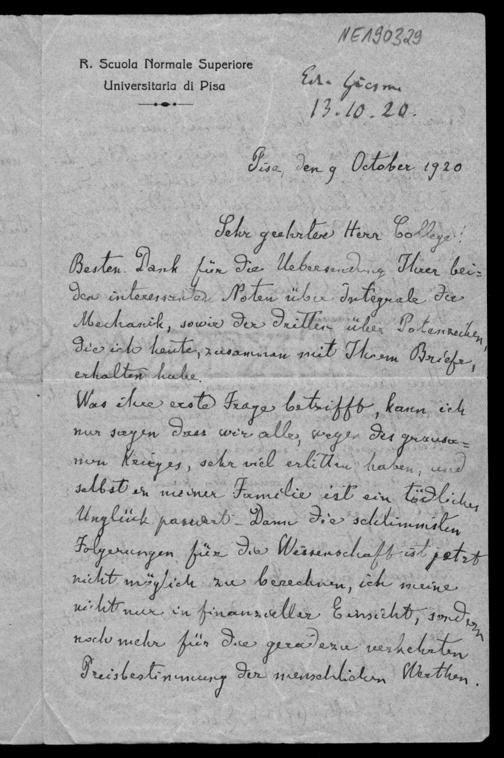 NE190329
R. Scuola Normale Superiore
Universitaria di Pisa
13.10.20.
Pisa, den 9 October 1920
Sehr geehrter Herr College!
Besten Dank für die Uebersendung Ihrer bei=
den interessanten Noten über Integrale der
Mechanik, sowie der dritten über Potenzreihen,
die ich heute, zusammen mit Ihrem Briefe,
erhalten habe.
Was ihre erste Frage betrifft, kann ich
nur sagen dass wir alle, wegen des grausa=
men Krieges, sehr viel erlitten haben, und
selbst in meiner Familie ist ein tödliches
Unglück passiert. Dann die schlimmsten
Folgerungen für die Wissenschaft ist jetzt
nicht möglich zu berechnen, ich meine
nicht nur in finanzieller Einsicht, sondern
noch mehr für die geradezu verkehrten
Preisbestimmung der menschlichen Werthen.